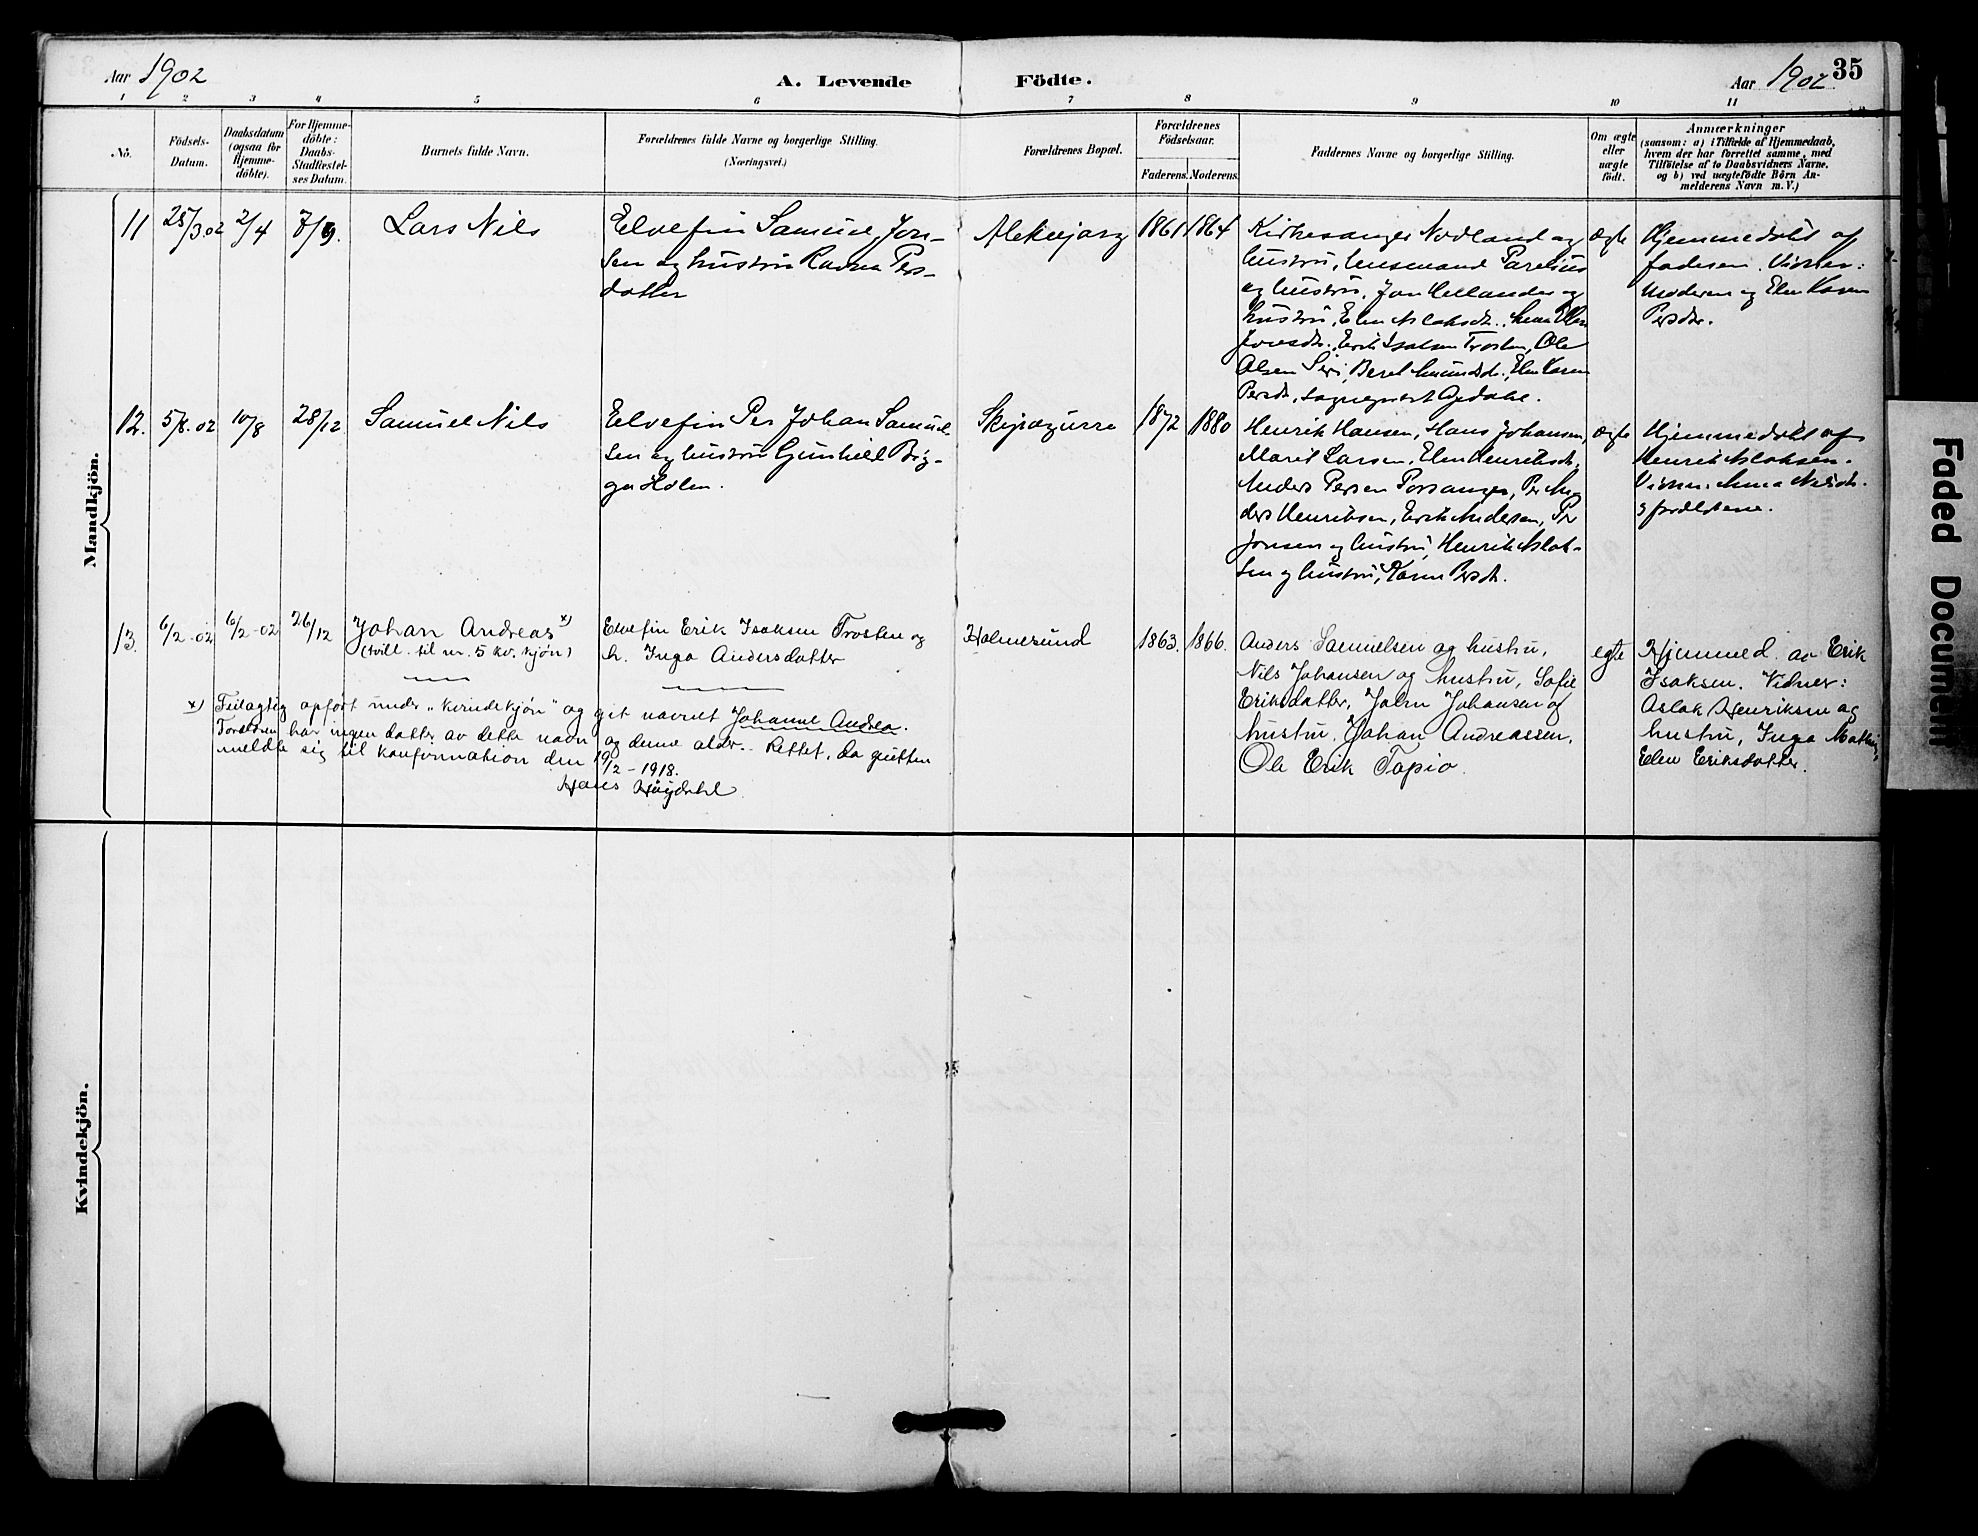 Aar 1902
A. Levende Födte.
Aar 1902.
35
1 2 3 4 5 6 7 8 9 10 11
No.
Födsels-
Datum.
Daabsdatum
(ogsaa for
Hjemme-
döbte).
For Hjemme-
döbte:
Daabs-
Stadfæstel-
ses Datum.
Barnets fulde Navn.
Forældrenes fulde Navne og borgerlige Stilling.
(Næringsvei.)
Forældrenes Bopæl.
Forældrenes
Födselsaar.
Faderens. Moderens.
Faddernes Navne og borgerlige Stilling.
Om ægte
eller
uægte
födt.
Anmærkninger
(saasom: a) i Tilfælde af Hjemmedaab,
hvem der har forrettet samme, med
Tilföielse af to Daabsvidners Navne,
og b) ved uægtefödte Börn An-
melderens Navn m. V.)
Mandkjön.
11
25/3.02
2/4
7/9.
Lars Nils
Elvefin Samuel Jon-
sen og hustru Ravna Pers-
datter
1861
1864
Kirkesanger Nodland og
hustru, Lensmand Parelius
og hustru, Jon Hellander og
hustru, Elen Aslaksdt.,
Erik Isaksen Trosten, Ole
Olsen Siri, Beret Amundsdt., Elen Karen
Persdt., sogneprest Gjødahl.
ægte
Hjemmedøbt af
faderen. Vidner:
moderen og Elen Karen
Persdtr.
12.
5/8.02
10/8
28/12
Samuel Nils
Elvefin Per Johan Samuel-
sen og hustru Gunhild Big-
ga
1872
1880
Henrik Hansen, Hans Johansen,
Marit Larsen, Elen Henriksdt.,
Anders Persen Porsanger, Per An-
ders Henriksen, Erik Andersen, Per
Jonsen og hustru, Henrik Aslak-
sen og hustru, Karen Persdt.
ægte
Hjemmedøbt af
Henrik Aslaksen.
Vidner: Anna Nilsdt.
og forældrene.
13.
6/2-02
6/2-02
26/12
Johan Andreas x)
(tvill. til nr. 5 kv. kjøn)
Elvefin Erik Isaksen Trosten og
h. Inga Andersdatter
Holmesund
1863.
1866.
Anders Samuelsen og hustru,
Nils Johansen og hustru, Sofie
Eriksdatter, John Johansen og
hustru, Johan Andreassen,
Ole Erik Tapio.
egte
Hjemmed. av Erik
Isaksen. Vidner:
Aslak Henriksen og
hustru, Inga Mathis,
Elen Eriksdatter.
x) Feilagtig opført under "kvindekjøn" og git navnet Johanne Andrea.
Forældren har ingen datter av dette navn og denne alder. Rettet, da gutten
meldte sig til konfirmation den 19/2-1918.
Hans Høydahl
Kvindekjön.
Faded Document